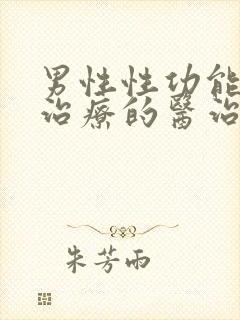 男性性功能
治療的醫治
朱芳雨